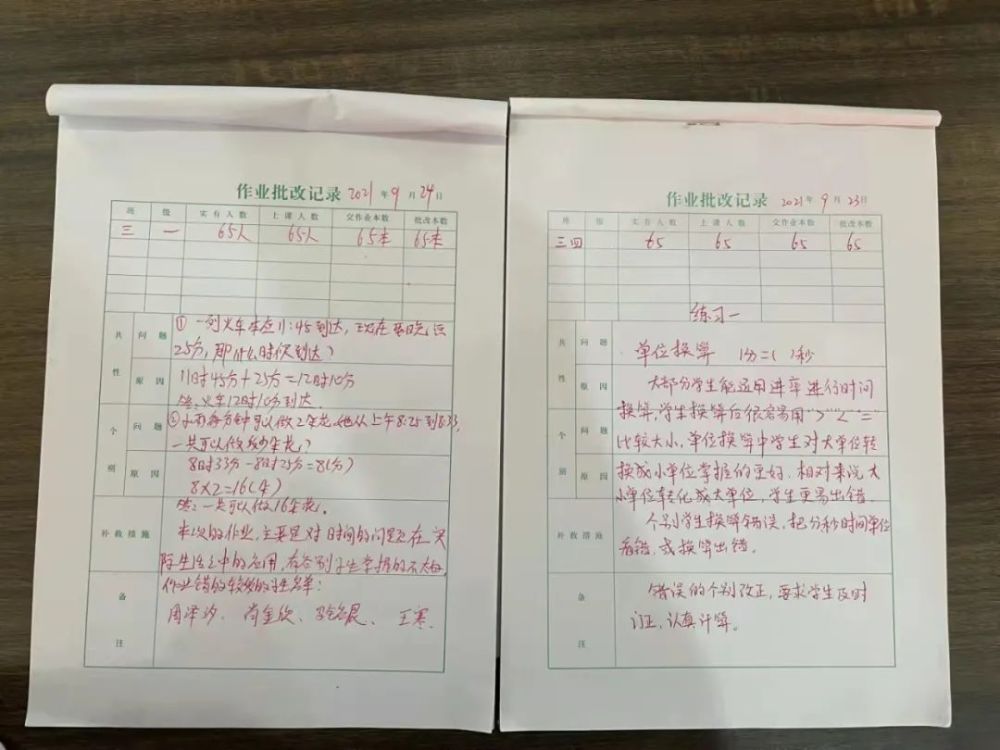 作业批改记录 2021年9月24日
班 级 实有人数 上课人数 交作业本数 批改本数
三 一 65人 65人 65本 65本
共性 问题
① 一列火车本应11:45到达,现在要晚点
25分,那什么时候到达?
原因
11时45分+25分=12时10分
答:火车12时10分到达.
个别 问题
② 每分钟可以做2朵花,她从上午8:25到8:33,
一共可以做多少朵花?
原因
8时33分-8时25分=8(分)
8×2=16(朵)
答:一共可以做16朵花.
补救措施
本次的作业,主要是对时间的问题在实
际生活之中的应用,有个别学生掌握的不太好,
作业错的较多的学生名单:
备注
周泽汐、 王寒.
作业批改记录 2021年9月23日
班 级 实有人数 上课人数 交作业本数 批改本数
三 四 65 65 65 65
练习一
共性 问题
单位换算 1分=( )秒
原因
大部分学生能运用进率进行时间
换算,学生换算后很容易用">""<""="
个别 问题
比较大小,单位换算中学生对大单位转
换成小单位掌握的更好.相对来说
原因
小单位转化成大单位,学生更易出错.
个别学生换算错误,把分秒时间单位
补救措施
看错,或换算出错。
备注
错误的个别改正,要求学生及时
订正,认真计算。